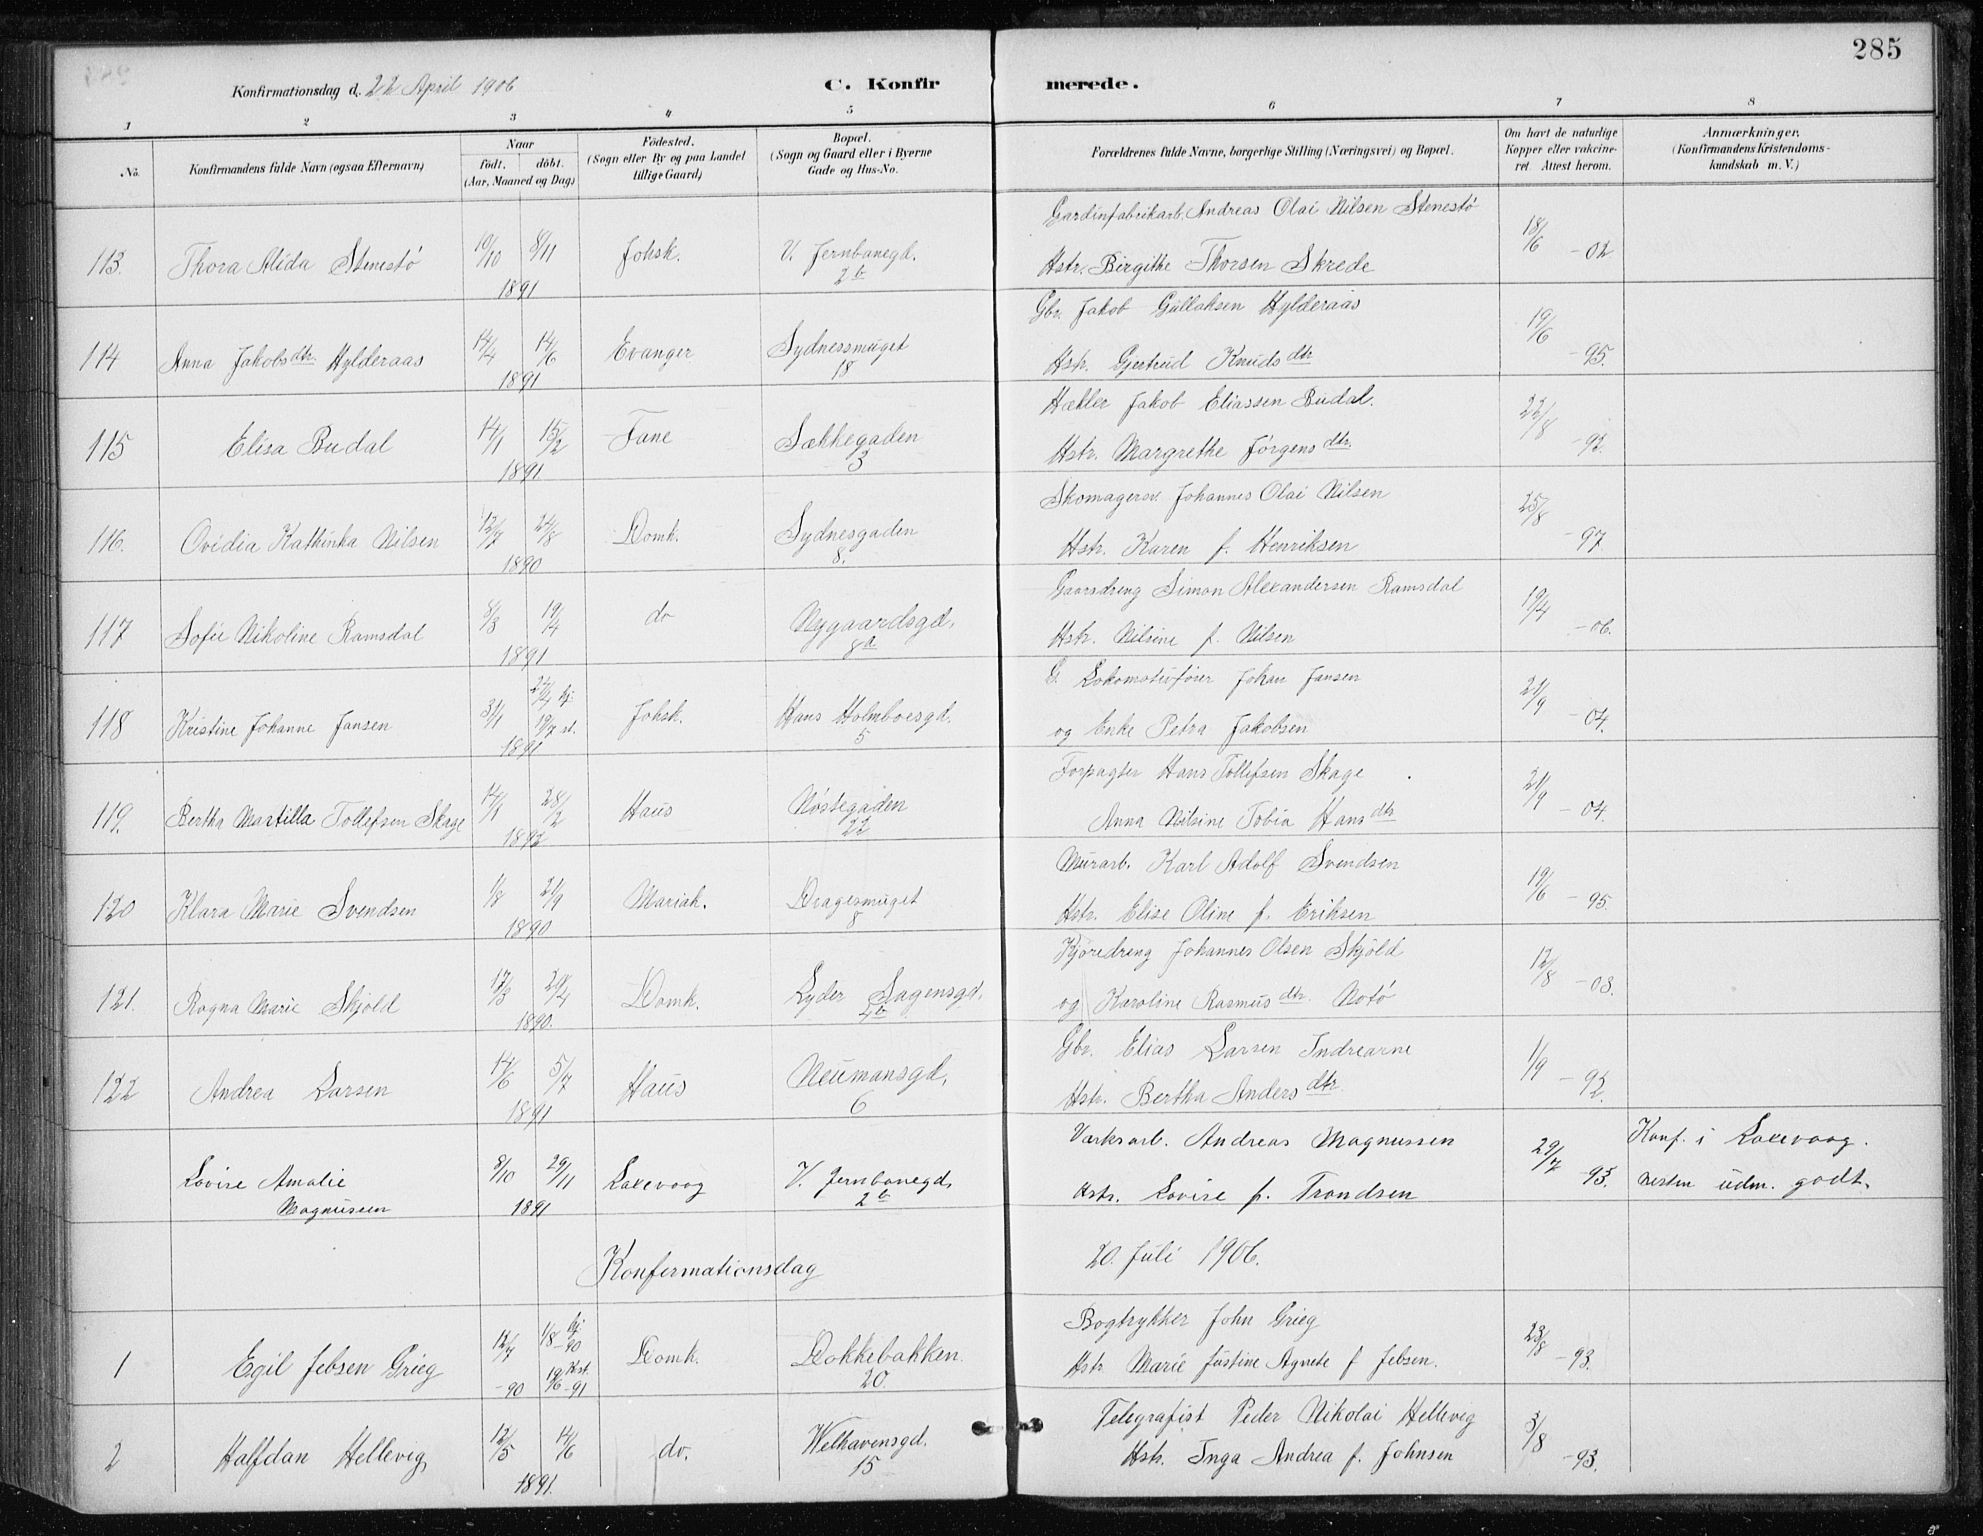 285
Konfirmationsdag d. 22 April 1906
C. Konfir merede.
1 2 3 4 5 6 7 8
No.
Konfirmandens fulde Navn (ogsaa Efternavn)
Naar
födt. döbt.
(Aar, Maaned og Dag)
Födested.
(Sogn eller By og paa Landet
tillige Gaard)
Bopæl.
(Sogn og Gaard eller i Byerne
Gade og Hus-No.
Forældrenes fulde Navne, borgerlige Stilling (Næringsvei) og Bopæl.
Om havt de naturlige
Kopper eller vakcine-
ret. Attest herom.
Anmærkninger.
(Konfirmandens Kristendoms-
kundskab m. V.)
113. Thora Alida Stenestö 10/10 8/11 1891 Johsk. V. Jernbanegd. 2b
Gardinfabrikarb. Andreas Olai Nilsen Stenestö
Hstr. Birgithe Thorsen Skrede 18/6 -02
114 Anna Jakobsdtr. Hylderaas 14/4 14/6 1891 Evanger Sydnessmuget 18
Gbr. Jakob Gullaksen Hylderaas
Hstr. Gjertrud Knudsdtr 19/6 -95.
115 Elisa Budal 14/1 15/2 1891 Fane Sækkegaden 3
Hækler Jakob Eliassen Budal.
Hstr. Margrethe Jörgensdtr. 22/8 -92.
116. Ovidia Kathinka Nilsen 12/7 24/8 1890 Domk. Sydnesgaden 8.
Skomagersv. Johannes Olai Nilsen
Hstr. Karen f. Henriksen 25/8 -97
117 Sofie Nikoline Ramsdal 8/3 19/4 1891 do Nygaardsgd. 8d
Gaarsdreng Simon Alexandersen Ramsdal
Hstr. Nilsine f. Nilsen 19/4 -06.
118 Kristine Johanne Jansen 31/1 hj. 19/7 st. 1891 Johsk. Hans Holmboesgd. 5
Lokomotivfører Johan Jansen
og Enke Petra Jakobsen 21/9 -04.
119. Bertha Martilla Tollefsen Skage 14/1 28/2 1892 Haus Nöstegaden 22
Forpagter Hans Tollefsen Skage
Anna Nilsine Tobia Hansdtr 21/9 -04.
120 Klara Marie Svendsen 1/8 21/9 1890 Mariak. Dragesmuget 8
Murarb. Karl Adolf Svendsen
Hstr. Elise Oline f. Eriksen 19/6 -95.
121. Ragna Marie Skjöld 17/3 20/4 1890. Domk. Lyder Sagensgd. 4b
Kjöredreng Johannes Olsen Skjöld
og Karoline Rasmusdtr. Notö 12/8 -03.
122 Andrea Larsen 14/6 5/7 1891 Haus Neumansgd. 6
Gbr. Elias Larsen Indrearne
Hstr. Bertha Andersdtr. 1/9 -92.
Lovise Amalie
Magnussen 8/10 29/11 1891 Laxevaag V. Jernbanegd. 2b
Værksarb. Andreas Magnussen
Hstr. Lovise f. Trondsen 29/7 -93.
Konf. i Laxevaag.
nesten udm. godt.
Konfermationsdag 20. Juli 1906.
1 Egil Jebsen Grieg 12/7 -90 1/8 -90 hj 19/6 -91 Kst. Domk. Dokkebakken. 20.
Bogtrykker John Grieg
Hstr Marie Justine Agnete f Jebsen. 23/8 -93.
2 Halfdan Hellevig 12/5 14/6 1891. do. Welhavensgd. 15
Telegrafist Peder Nikolai Hellevig
Hstr. Inga Andrea f. Johnsen 3/8 -93.